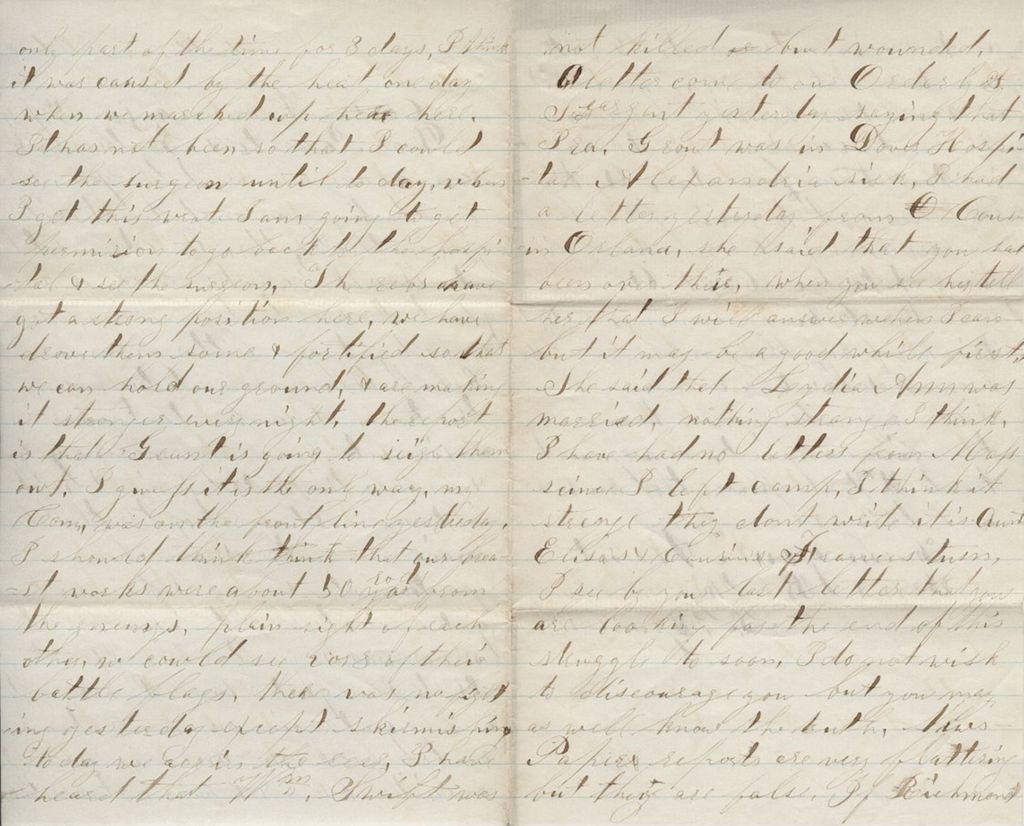 only part of the time for 3 days, I think
it was caused by the heat one day
when we marched up here.
It has not been so that I could
see the surgeon until to day, when
I get this wrote I am going to get
permision to go back to the hospi-
tal & see the surgeon, The rebs have
got a strong position here, we have
drove them some & fortified so that
we can hold our ground, & are making
it stronger every night, the report
is that Grant is going to seige them
out, I guess it is the only way, my
Com, was on the front line yesterday,
I should think think that our brea-
st works were about 50 rod from
the enemys, plain sight of each
other, we could see rows of their
battle flags, there was no fight
ing yesterday except skirmishing
to day we are in the rear, I have
heard that Wm. Swift was
not killed but wounded,
A letter come to an Orderly
Seargent yesterday saying that
Ira, Grout was in Hospi-
-tal Alexandria sick, I had
a letter yesterday from
in Orland, she said that you had
been over there, when you see her tell
her that I will answer when I can
but it may be a good while first,
She said that Lydia Ann was
married, nothing strange I think,
I have had no letters from Mass
seince I left camp, I think it
strange they dont write it is Aunt
Elisas & Cousin Frances turn,
I see by you last letter that you
are looking for the end of this
struggle to soon, I do not wish
to discourage you but you may
as well know the truth, News-
Papers reports are very flattering
but they are false, If Richmond